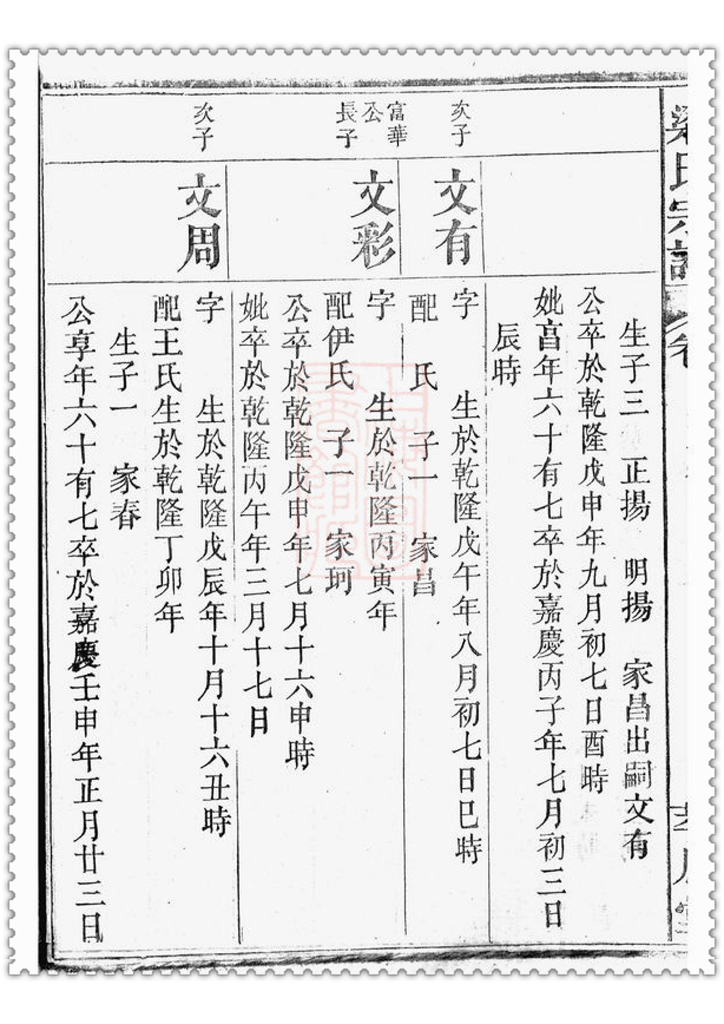 梁氏宗譜
卷
生子三 正揚 明揚 家昌出嗣文有
公卒於乾隆戊申年九月初七日酉時
妣享年六十有七卒於嘉慶丙子年七月初三日
辰時
次子
文有
字 生於乾隆戊午年八月初七日巳時
配 氏 子一 家昌
富華
公
長子
文彩
字 生於乾隆丙寅年
配伊氏 子一 家珂
公卒於乾隆戊申年七月十六申時
妣卒於乾隆丙午年三月十七日
次子
文周
字 生於乾隆戊辰年十月十六丑時
配王氏生於乾隆丁卯年
生子一 家春
公享年六十有七卒於嘉慶壬申年正月廿三日